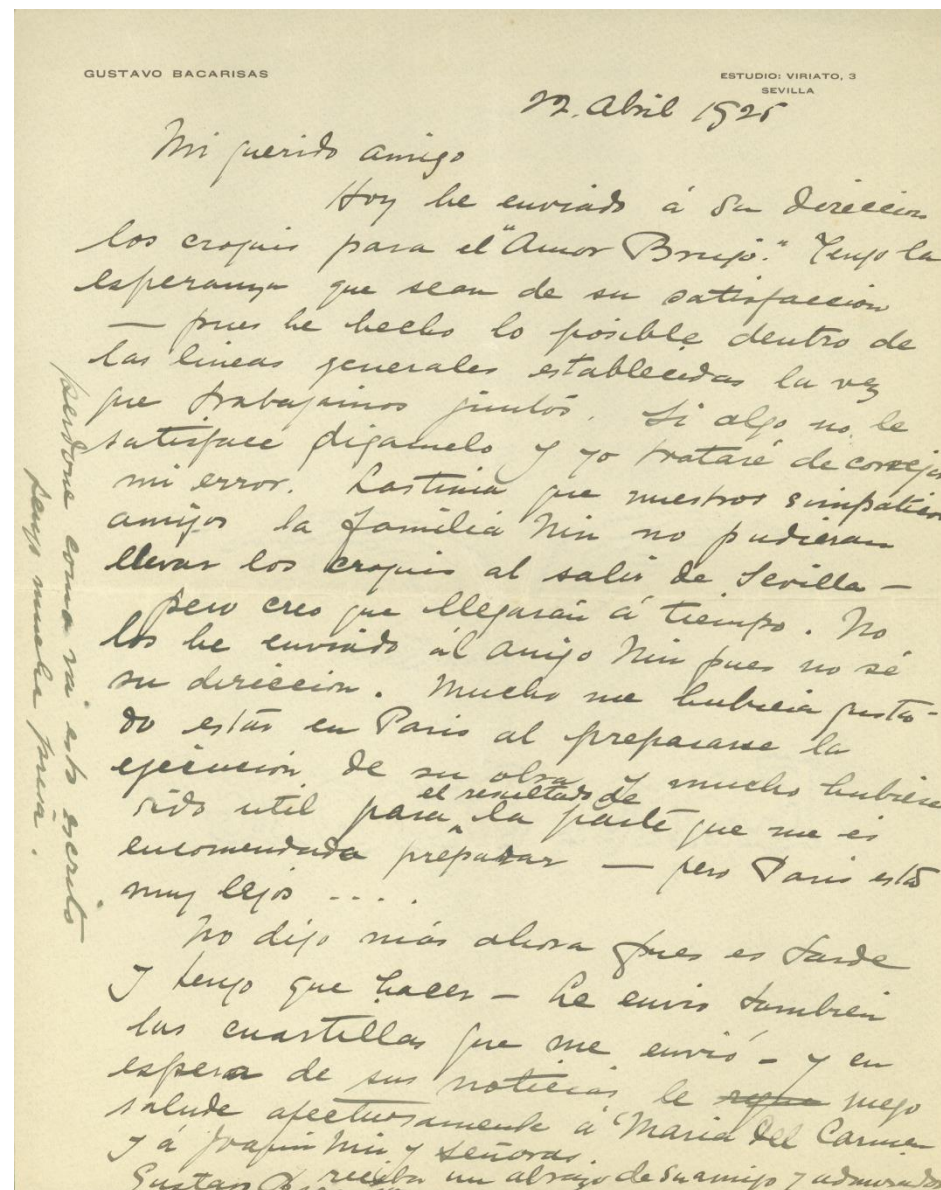 GUSTAVO BACARISAS
ESTUDIO: VIRIATO, 3
SEVILLA
22. Abril 1925
Mi querido amigo
Hoy he enviado á su direccion
los croquis para el "Amor Brujo." Tengo la
esperanza que sean de su satisfaccion
— pues he hecho lo posible dentro de
las lineas generales establecidas la vez
que trabajamos juntos. Si algo no le
satisface digamelo y yo trataré de corregir
mi error. Lastima que nuestros simpaticos
amigos la familia Nin no pudieran
llevar los croquis al salir de Sevilla —
pero creo que llegarán á tiempo. No
los he enviado ál amigo Nin pues no sé
su direccion. Mucho me hubiera gusta-
do estár en Paris al prepararse la
ejecucion de su obra y mucho hubiese
sido util para el resultado de la parte que me es
encomendada preparar — pero Paris está
muy lejos ....
No digo más ahora pues es tarde
y tengo que hacer — Le envio tambien
las cuartillas que me envió — y en
espera de sus noticias le ruego
salude afectuosamente á Maria del Carmen
y á Joaquin Nin y señoras.
Gustavo reciba un abrazo de su amigo y admirador
perdone como vá esto escrito
tengo mucha prisa.